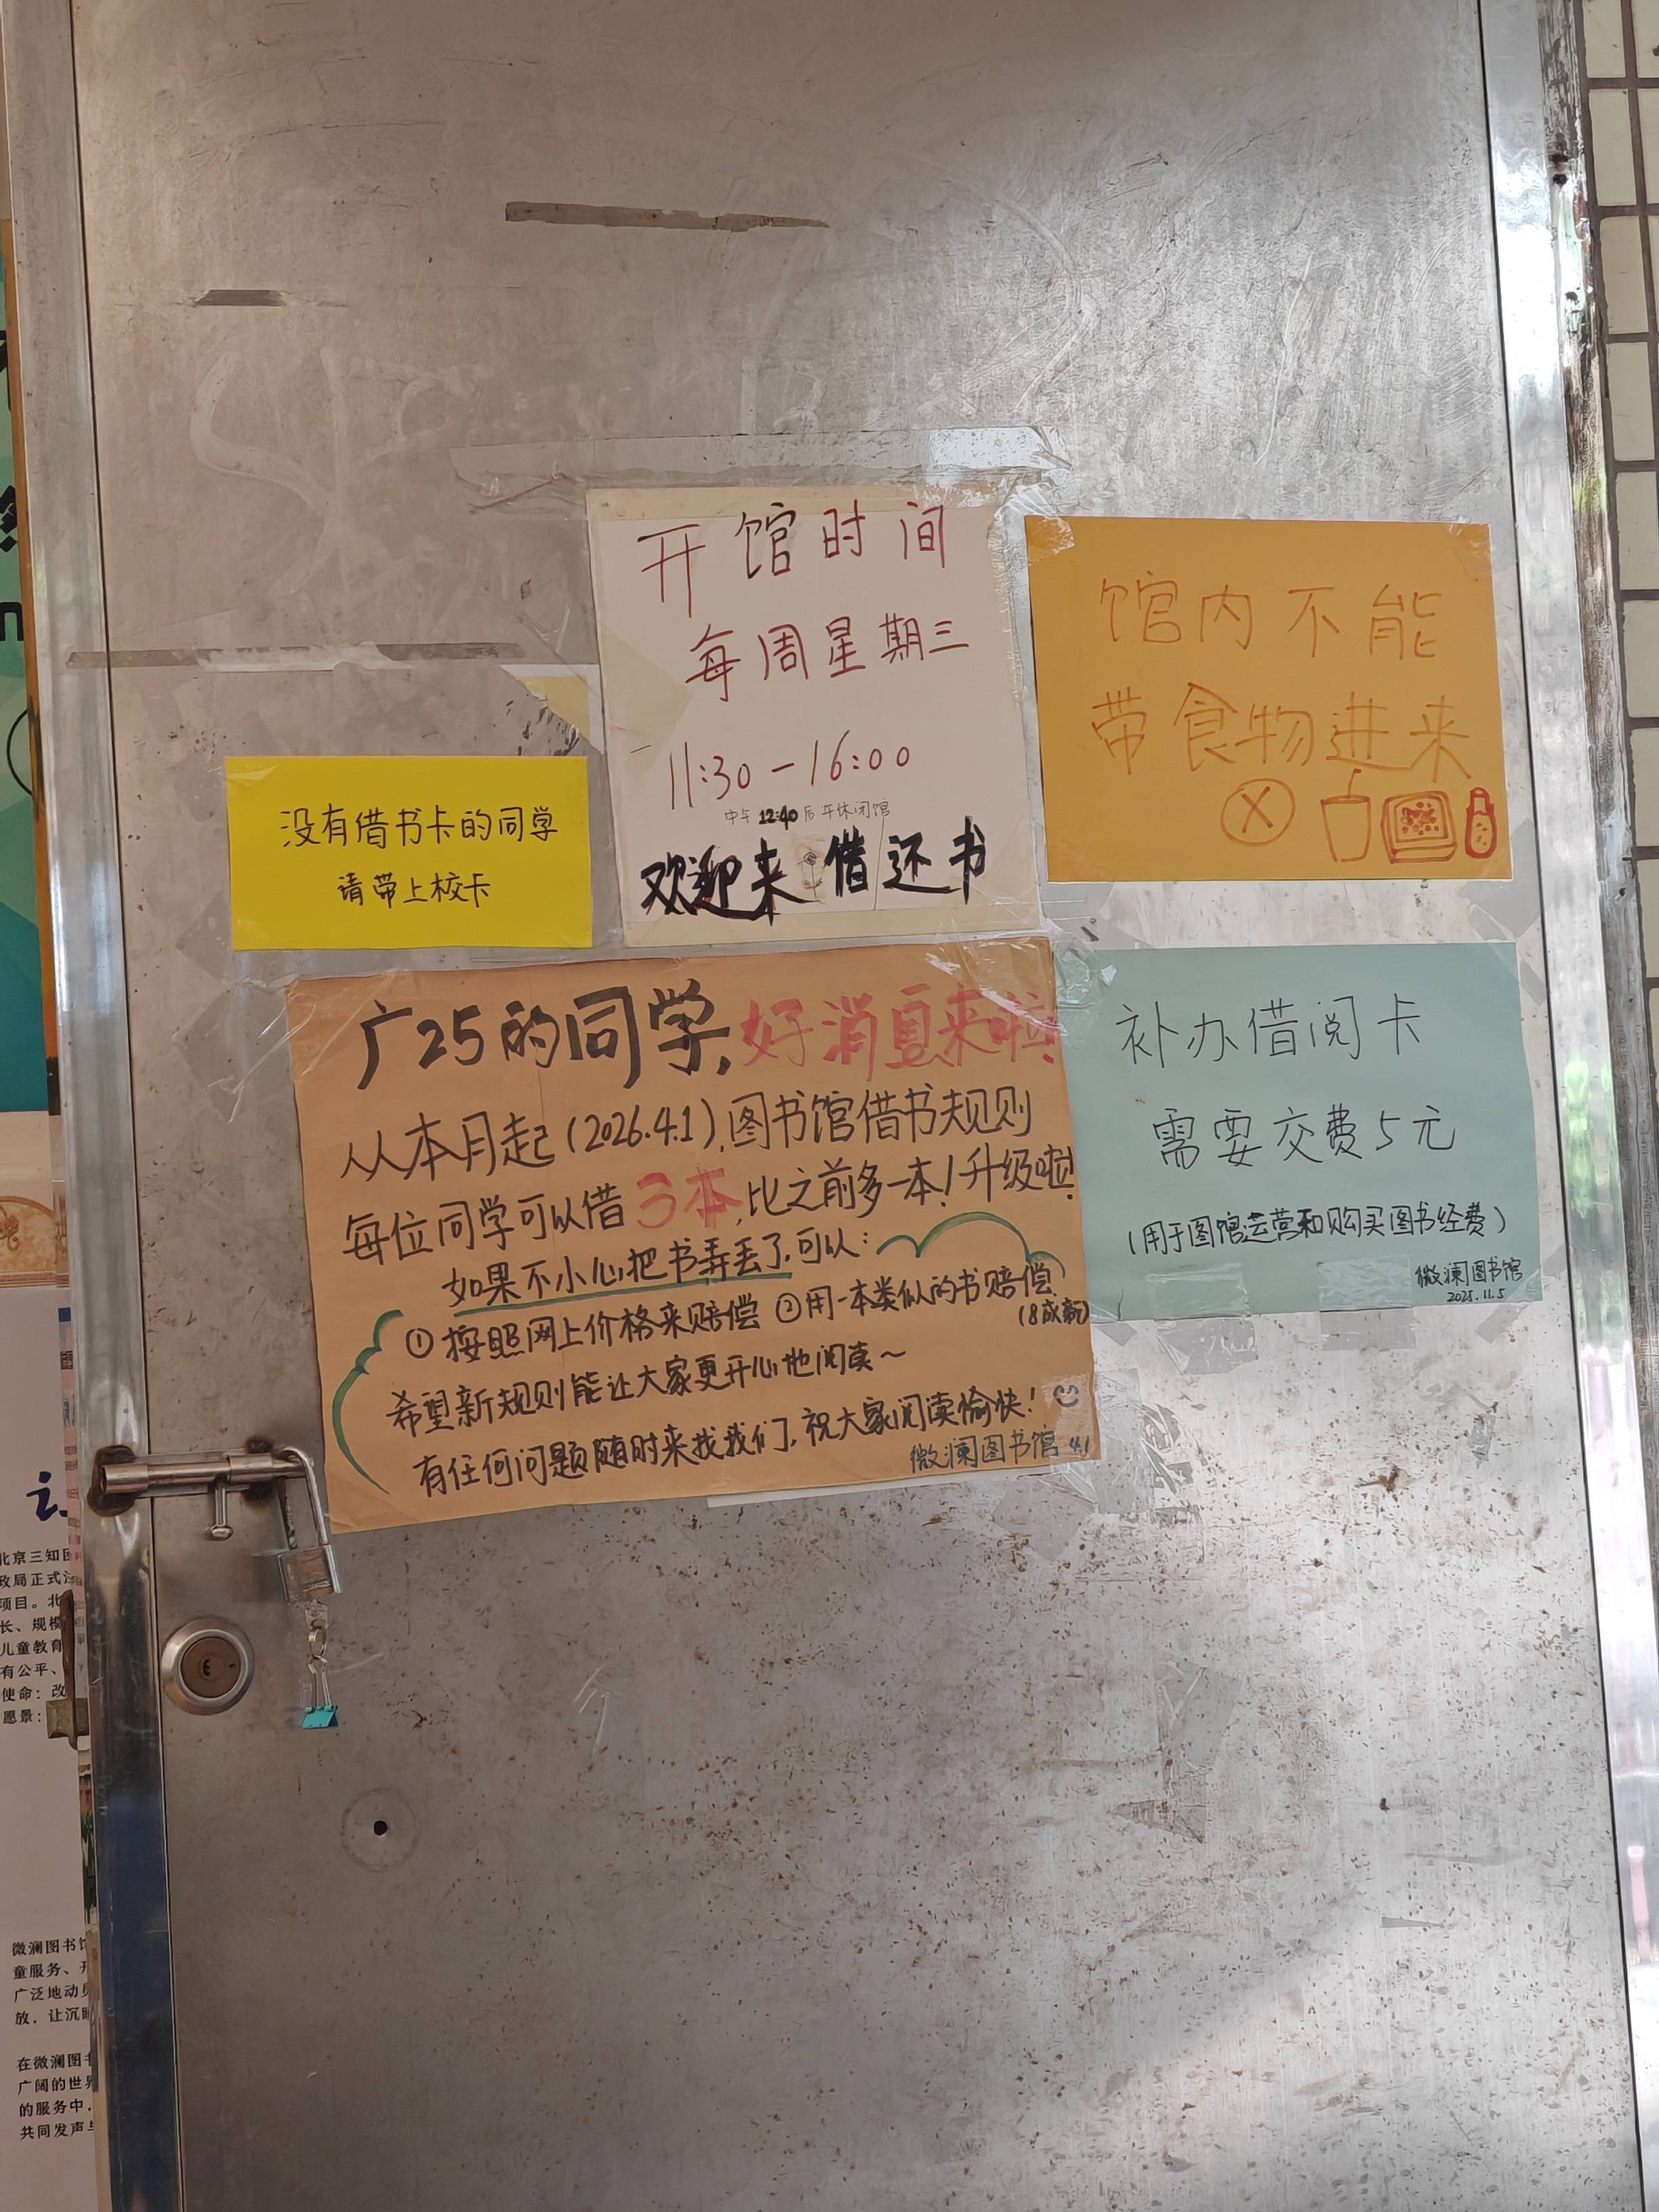 开馆时间
每周星期三
11:30-16:00
中午12:40后午休闭馆
欢迎来借还书
馆内不能
带食物进来
没有借书卡的同学
请带上校卡
广25的同学,好消息来啦!
从本月起(2026.4.1),图书馆借书规则
每位同学可以借3本,比之前多一本!升级啦!
如果不小心把书弄丢了,可以:
①按照网上价格来赔偿 ②用一本类似的书赔偿
(8成新)
希望新规则能让大家更开心地阅读~
有任何问题随时来找我们,祝大家阅读愉快!
微澜图书馆 4.1
补办借阅卡
需要交费5元
(用于图馆运营和购买图书经费)
微澜图书馆
2025.11.5
北京三知
政局正式
项目。北
长、规模
儿童教育
有公平、
使命:改
愿景:
微澜图书馆
童服务、
广泛地动
放,让沉
在微澜图
广阔的世
的服务中,
共同发声